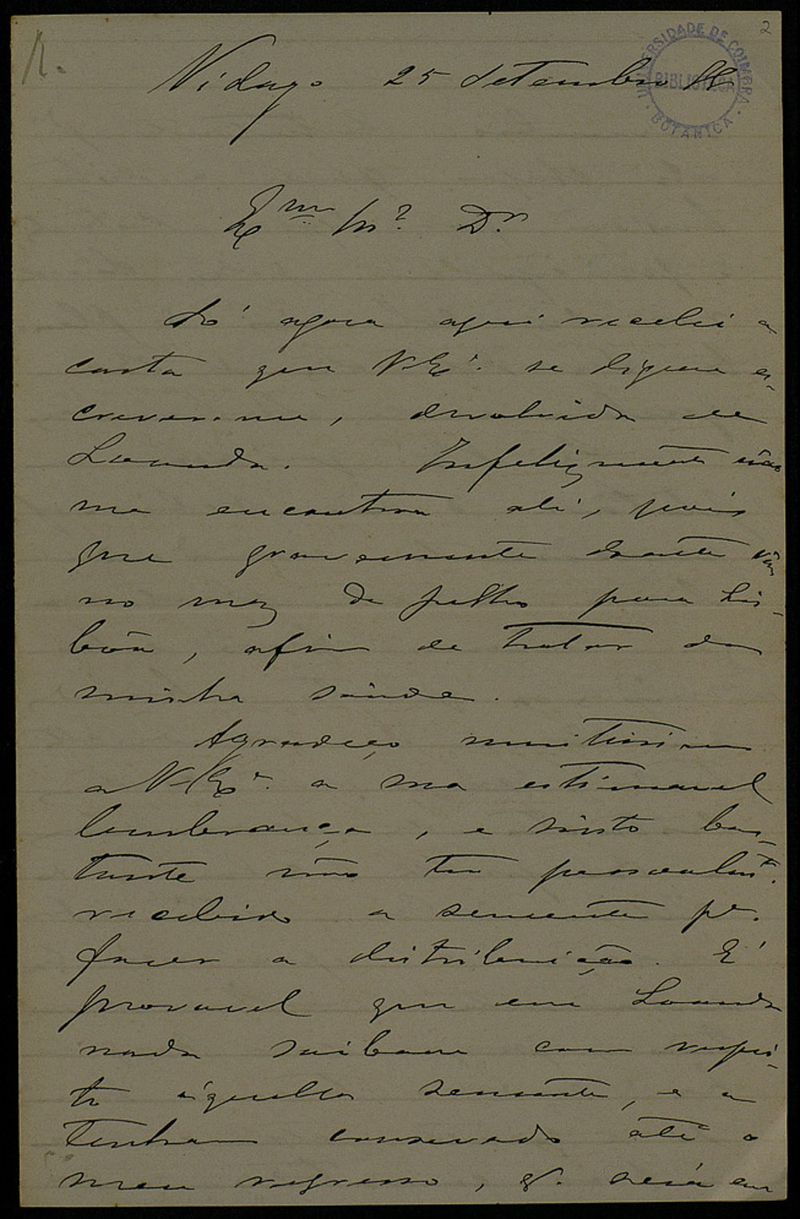 2
R.
UNIVERSIDADE DE COIMBRA
BIBLIOTECA
BOTANICA
Vidago 25 Setembro
Exmo Sr. Dr.
Só agora aqui recebi a
carta que V. Exª. se dignou es-
crever-me, devolvida de
Loanda. Infelizmente não
me encontrava ali, pois
que gravemente doente vim
no mez de Julho para Lis-
bôa, afim de tratar da
minha saúde.
Agradeço muitissimo
a V. Exª. a sua estimavel
lembrança, e sinto bas-
tante não ter pessoalmte.
recebido a semente pª.
fazer a distribuição. É
provavel que em Loanda
nada saibam com respei-
to áquella semente, e a
tenham conservado até o
meu regresso, q. será em